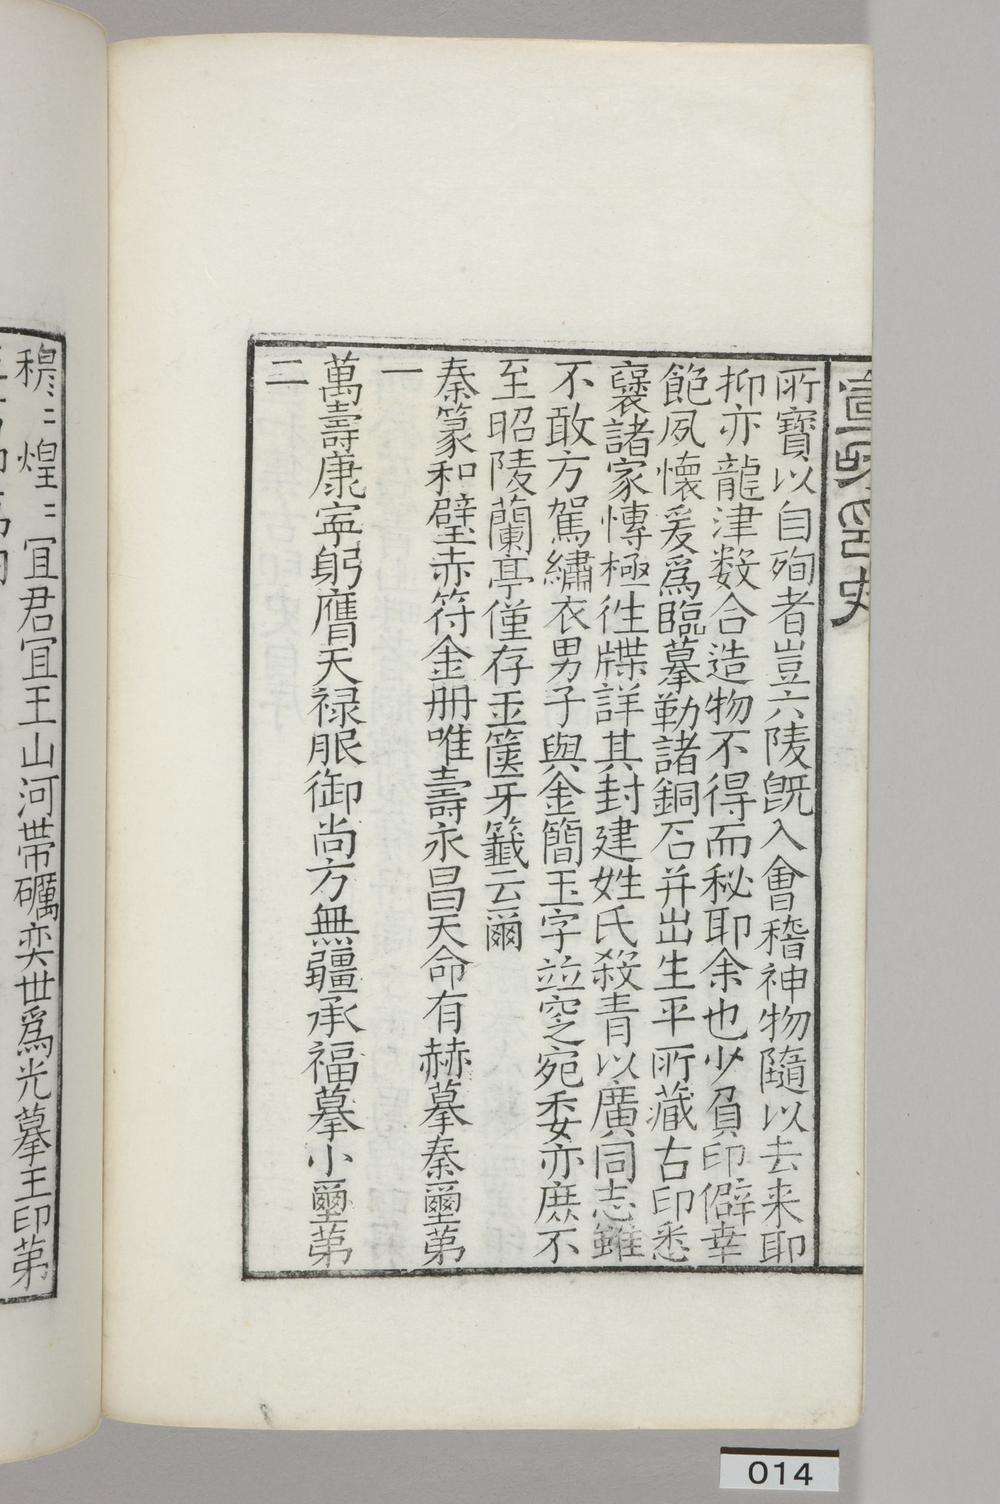 宣和印史
所寶以自殉者豈六陵既入會稽神物隨以去来耶
抑亦龍津数合造物不得而秘耶余也少負印僻幸
飽夙懷爰爲臨摹勒諸銅石并出生平所藏古印悉
襄諸家慱極徃牒詳其封建姓氏殺青以廣同志雖
不敢方駕繡衣男子與金簡玉字並窆宛委亦庶不
至昭陵蘭亭僅存玉篋牙籤云爾
秦篆和璧赤符金册唯壽永昌天命有赫摹秦璽第
一
萬壽康寍躬膺天禄服御尚方無疆承福摹小璽苐
二
穆〻煌〻宜君宜王山河帶礪奕世爲光摹王印苐
014